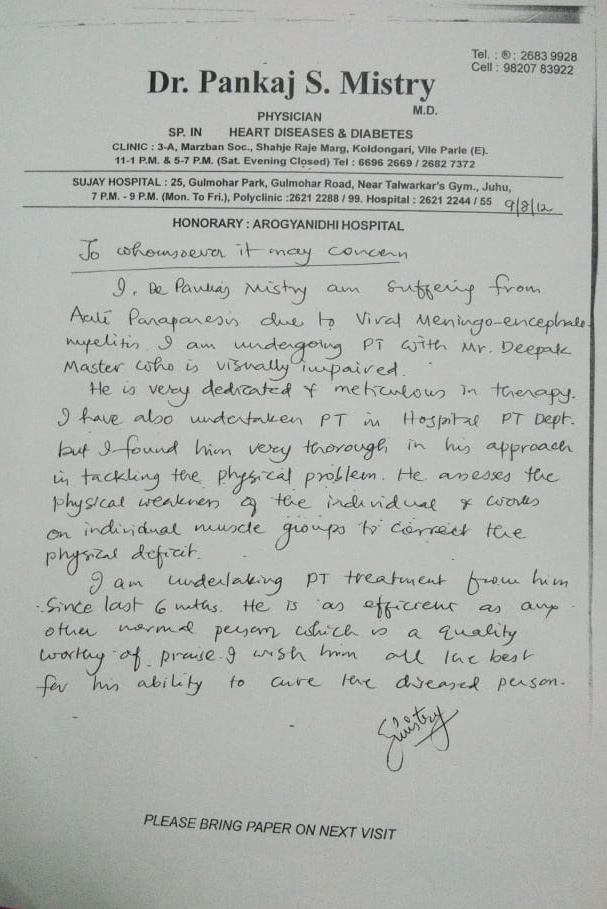 Tel. : ®: 2683 9928
Cell : 98207 83922
Dr. Pankaj S. Mistry
M.D.
PHYSICIAN
SP. IN HEART DISEASES & DIABETES
CLINIC : 3-A, Marzban Soc., Shahje Raje Marg, Koldongari, Vile Parle (E).
11-1 P.M. & 5-7 P.M. (Sat. Evening Closed) Tel : 6696 2669 / 2682 7372
SUJAY HOSPITAL : 25, Gulmohar Park, Gulmohar Road, Near Talwarkar's Gym., Juhu,
7 P.M. - 9 P.M. (Mon. To Fri.), Polyclinic :2621 2288 / 99. Hospital : 2621 2244 / 55 9/8/12
HONORARY : AROGYANIDHI HOSPITAL
To whomsoever it may concern
I, Dr Pankaj Mistry am suffering from
Acute Paraparesis due to Viral Meningo-encephalo-
myelitis. I am undergoing PT with Mr. Deepak
Master who is visually impaired.
He is very dedicated & meticulous in therapy.
I have also undertaken PT in Hospital PT Dept.
but I found him very thorough in his approach
in tackling the physical problem. He assesses the
physical weakness of the individual & works
on individual muscle groups to correct the
physical deficit.
I am undertaking PT treatment from him
since last 6 mths. He is as efficient as any
other normal person which is a quality
worthy of praise. I wish him all the best
for his ability to cure the diseased person.
Mistry
PLEASE BRING PAPER ON NEXT VISIT